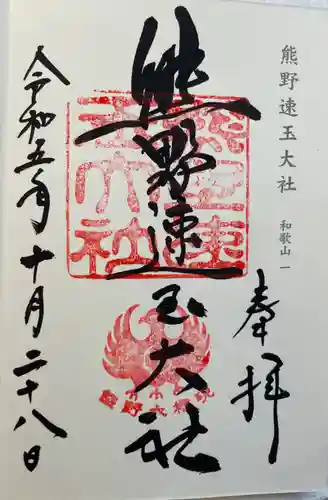 熊野速玉大社
和歌山 一
奉拝
熊野速玉大社
令和五年十月二十八日